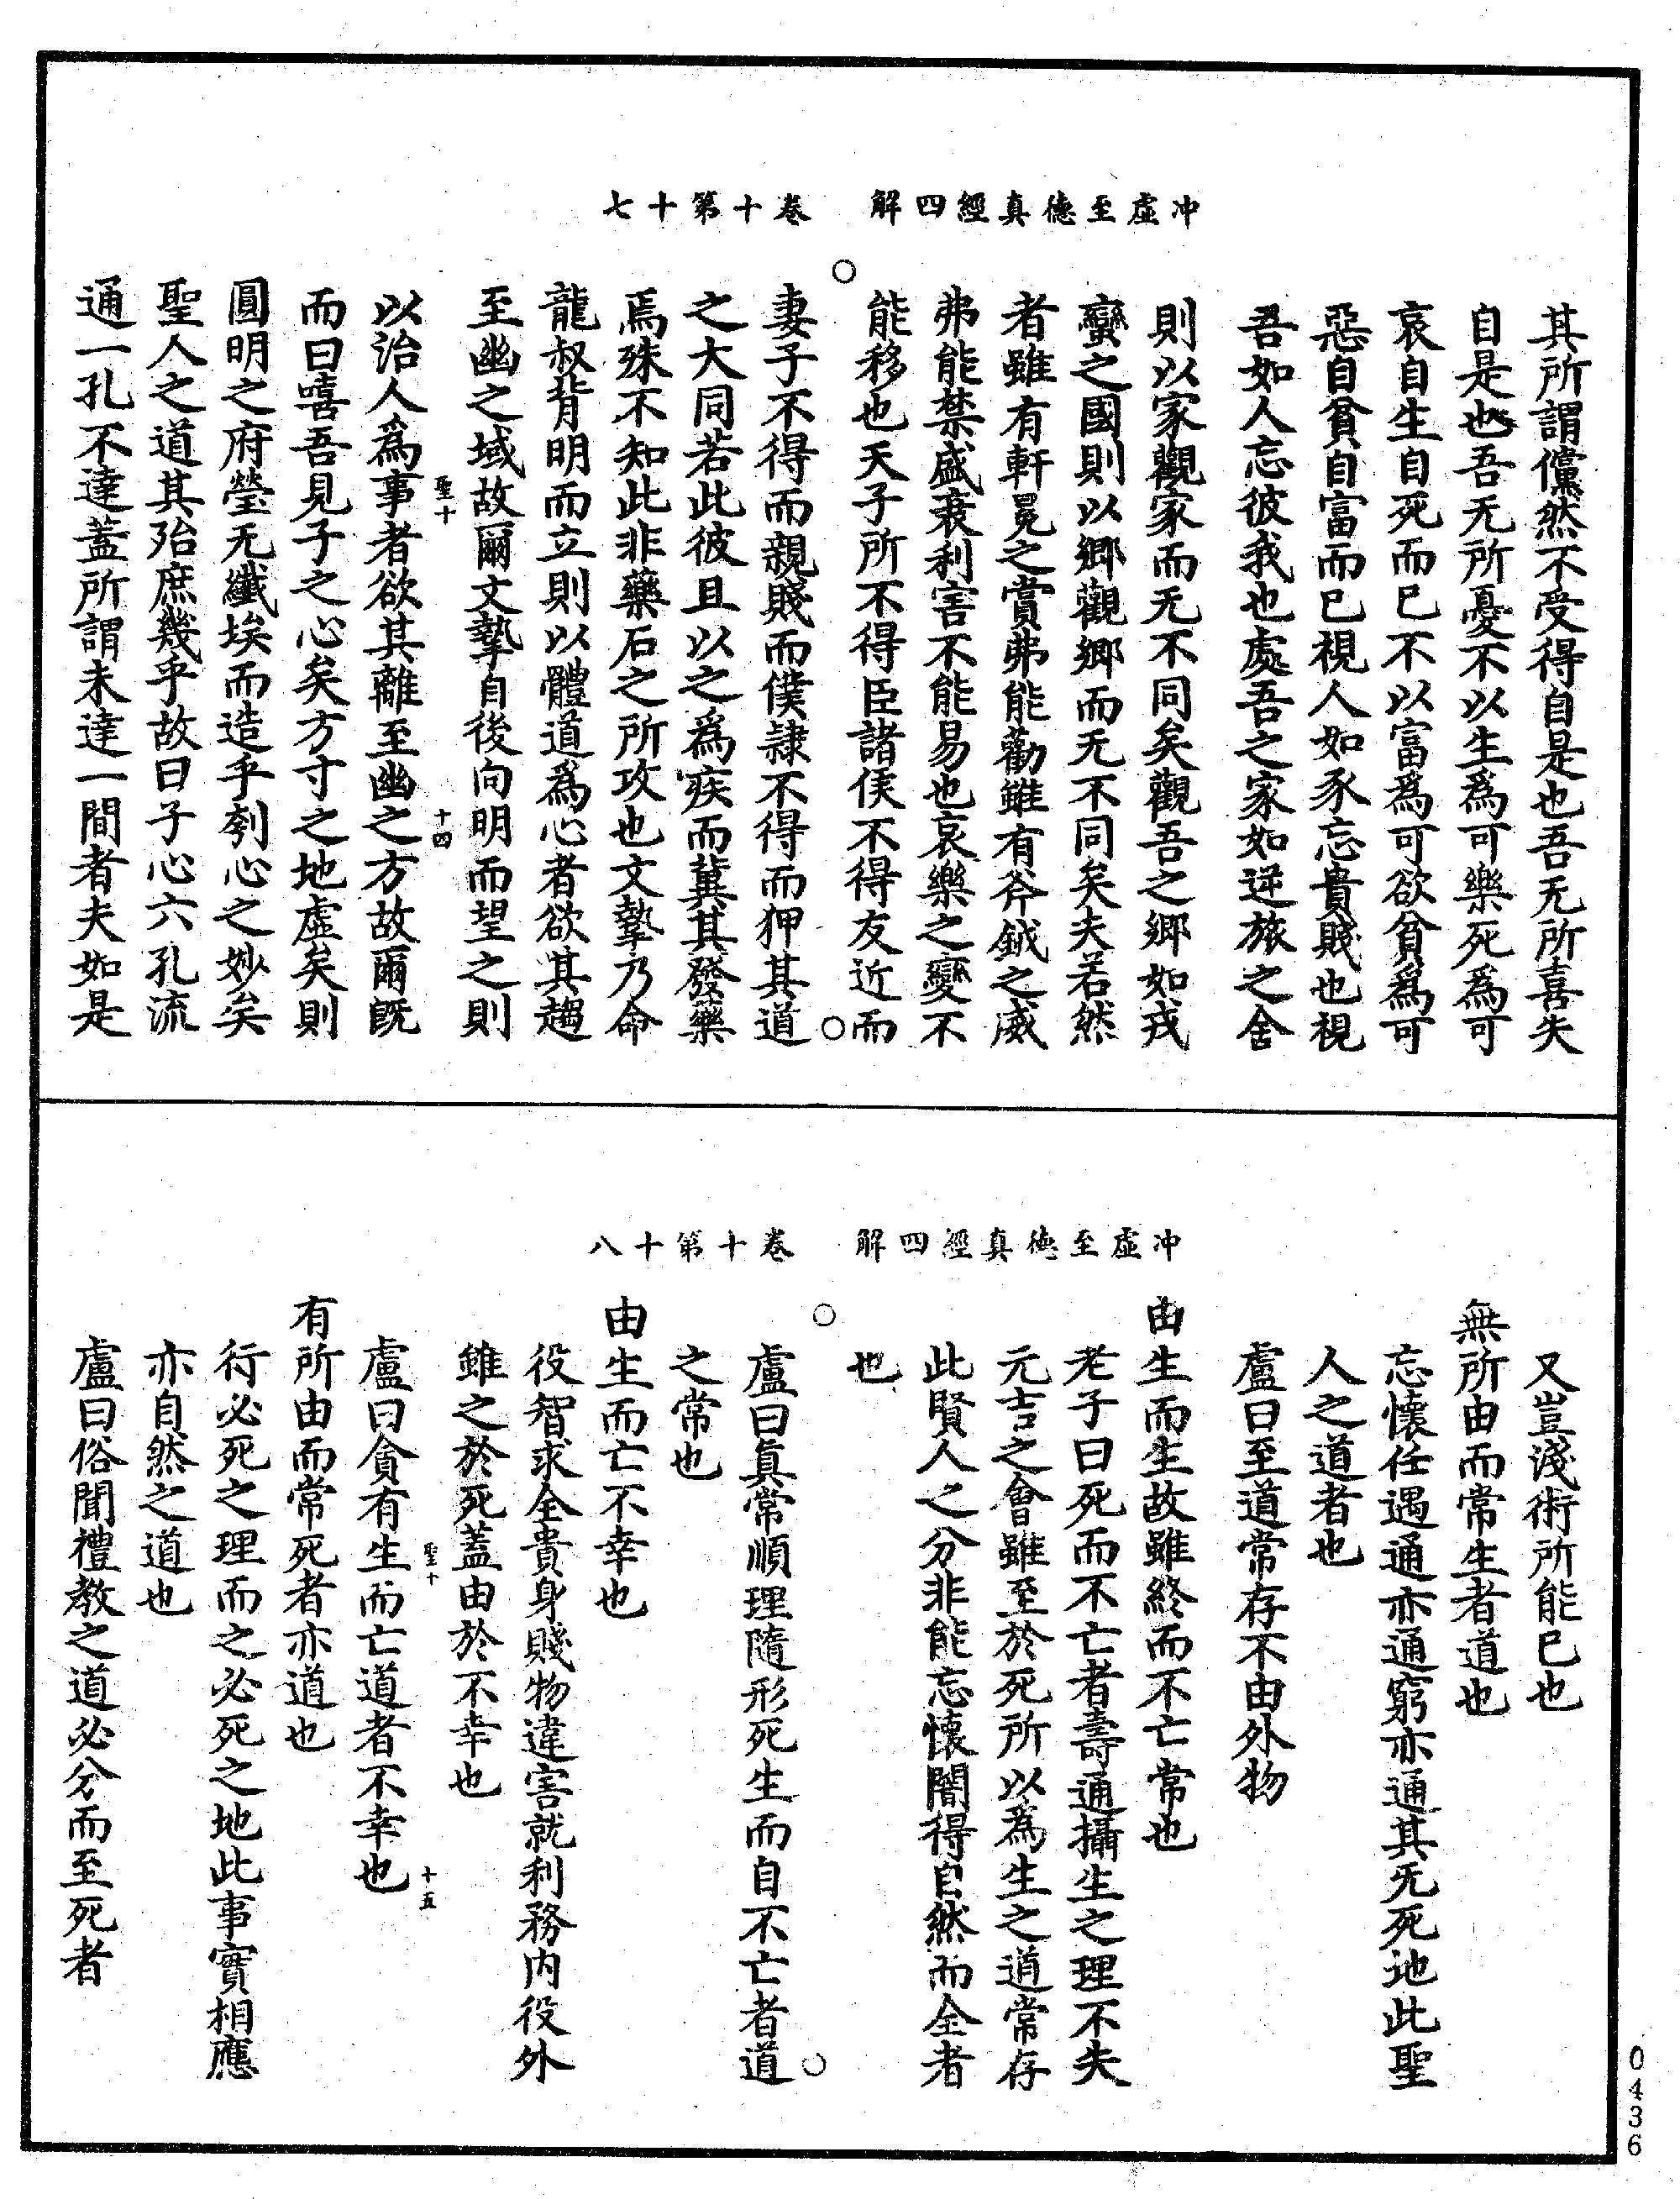 冲虛至德真經四解　卷十第十七
其所謂儻然不受得自是也吾无所喜失
自是也吾无所憂不以生爲可樂死爲可
哀自生自死而已不以富爲可欲貧爲可
惡自貧自富而已視人如豕忘貴賤也視
吾如人忘彼我也處吾之家如逆旅之舍
則以家觀家而无不同矣觀吾之鄉如戎
蠻之國則以鄉觀鄉而无不同矣夫若然
者雖有軒冕之賞弗能勸雖有斧鉞之威
弗能禁盛衰利害不能易也哀樂之變不
能移也天子所不得臣諸侯不得友近而
妻子不得而親賤而僕隷不得而狎其道
之大同若此彼且以之爲疾而冀其發藥
焉殊不知此非藥石之所攻也文摯乃命
龍叔背明而立則以體道爲心者欲其趨
至幽之域故爾文摯自後向明而望之則
聖十　十四
以治人爲事者欲其離至幽之方故爾旣
而曰嘻吾見子之心矣方寸之地虛矣則
圓明之府瑩无纖埃而造乎刳心之妙矣
聖人之道其殆庶幾乎故曰子心六孔流
通一孔不達蓋所謂未達一間者夫如是
冲虛至德真經四解　卷十第十八
又豈淺術所能已也
無所由而常生者道也
忘懷任遇通亦通窮亦通其无死地此聖
人之道者也
盧曰至道常存不由外物
由生而生故雖終而不亡常也
老子曰死而不亡者壽通攝生之理不失
元吉之會雖至於死所以爲生之道常存
此賢人之分非能忘懷闇得自然而全者
也
盧曰眞常順理隨形死生而自不亡者道
之常也
由生而亡不幸也
役智求全貴身賤物違害就利務內役外
雖之於死蓋由於不幸也
聖十　十五
盧曰貪有生而亡道者不幸也
有所由而常死者亦道也
行必死之理而之必死之地此事實相應
亦自然之道也
盧曰俗聞禮教之道必分而至死者
0436